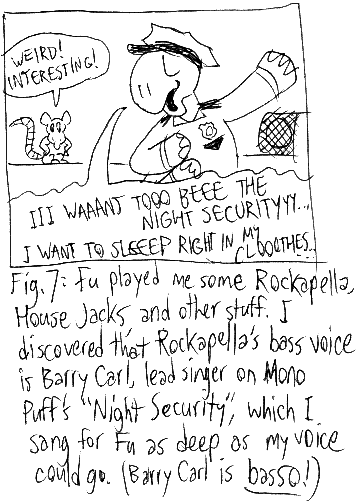 WEIRD!
INTERESTING!
III WAAANT TOOO BEEE THE
NIGHT SECURITYYY...
I WANT TO SLEEEP RIGHT IN MY
CLOOOTHES...
Fig. 7: Fu played me some Rockapella,
House Jacks and other stuff. I
discovered that Rockapella's bass voice
is Barry Carl, lead singer on Mono
Puff's "Night Security", which I
sang for Fu as deep as my voice
could go. (Barry Carl is basso!)